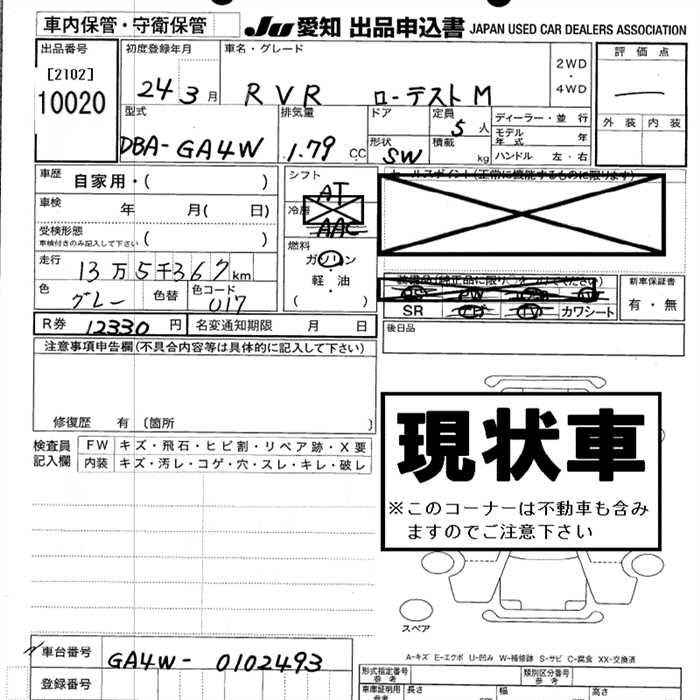 車内保管・守衛保管
JU 愛知 出品申込書 JAPAN USED CAR DEALERS ASSOCIATION
出品番号
[2102]
10020
初度登録年月
24 3 月
車名・グレード
RVR ローデストM
2WD
・
4WD
評価点
型式
DBA-GA4W
排気量
1.79 CC
ドア
形状
SW
定員
5 人
積載
kg
ディーラー・並行
モデル年式 年
ハンドル 左・右
外装 内装
車歴
自家用・( )
車検
年 月( 日)
受検形態
車検付きのみ記入して下さい ( )
走行
13万5千367km
色
グレー
色替
色コード
U17
シフト
AT
冷房
AAC
燃料
ガソリン
・
軽・油
( )
セールスポイント(正常に機能するものに限ります)
SR
カワシート
新車保証書
有・無
後日品
R券 12330 円
名変通知期限 月 日
注意事項申告欄(不具合内容等は具体的に記入して下さい)
修復歴 有 〔箇所 〕
検査員記入欄
FW キズ・飛石・ヒビ割・リペア跡・X要
内装 キズ・汚レ・コゲ・穴・スレ・キレ・破レ
現状車
※このコーナーは不動車も含み
ますのでご注意下さい
スペア
A-キズ E-エクボ U-凹み W-補修跡 S-サビ C-腐食 XX-交換済
車台番号
GA4W-0102493
登録番号
形式指定番号
参考
類別区分番号
参考
車庫証明用
参考
長さ
幅
高さ